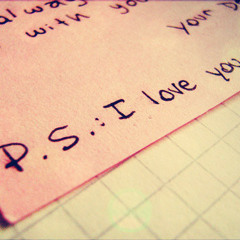 always
with you
your
P.S.: I love you